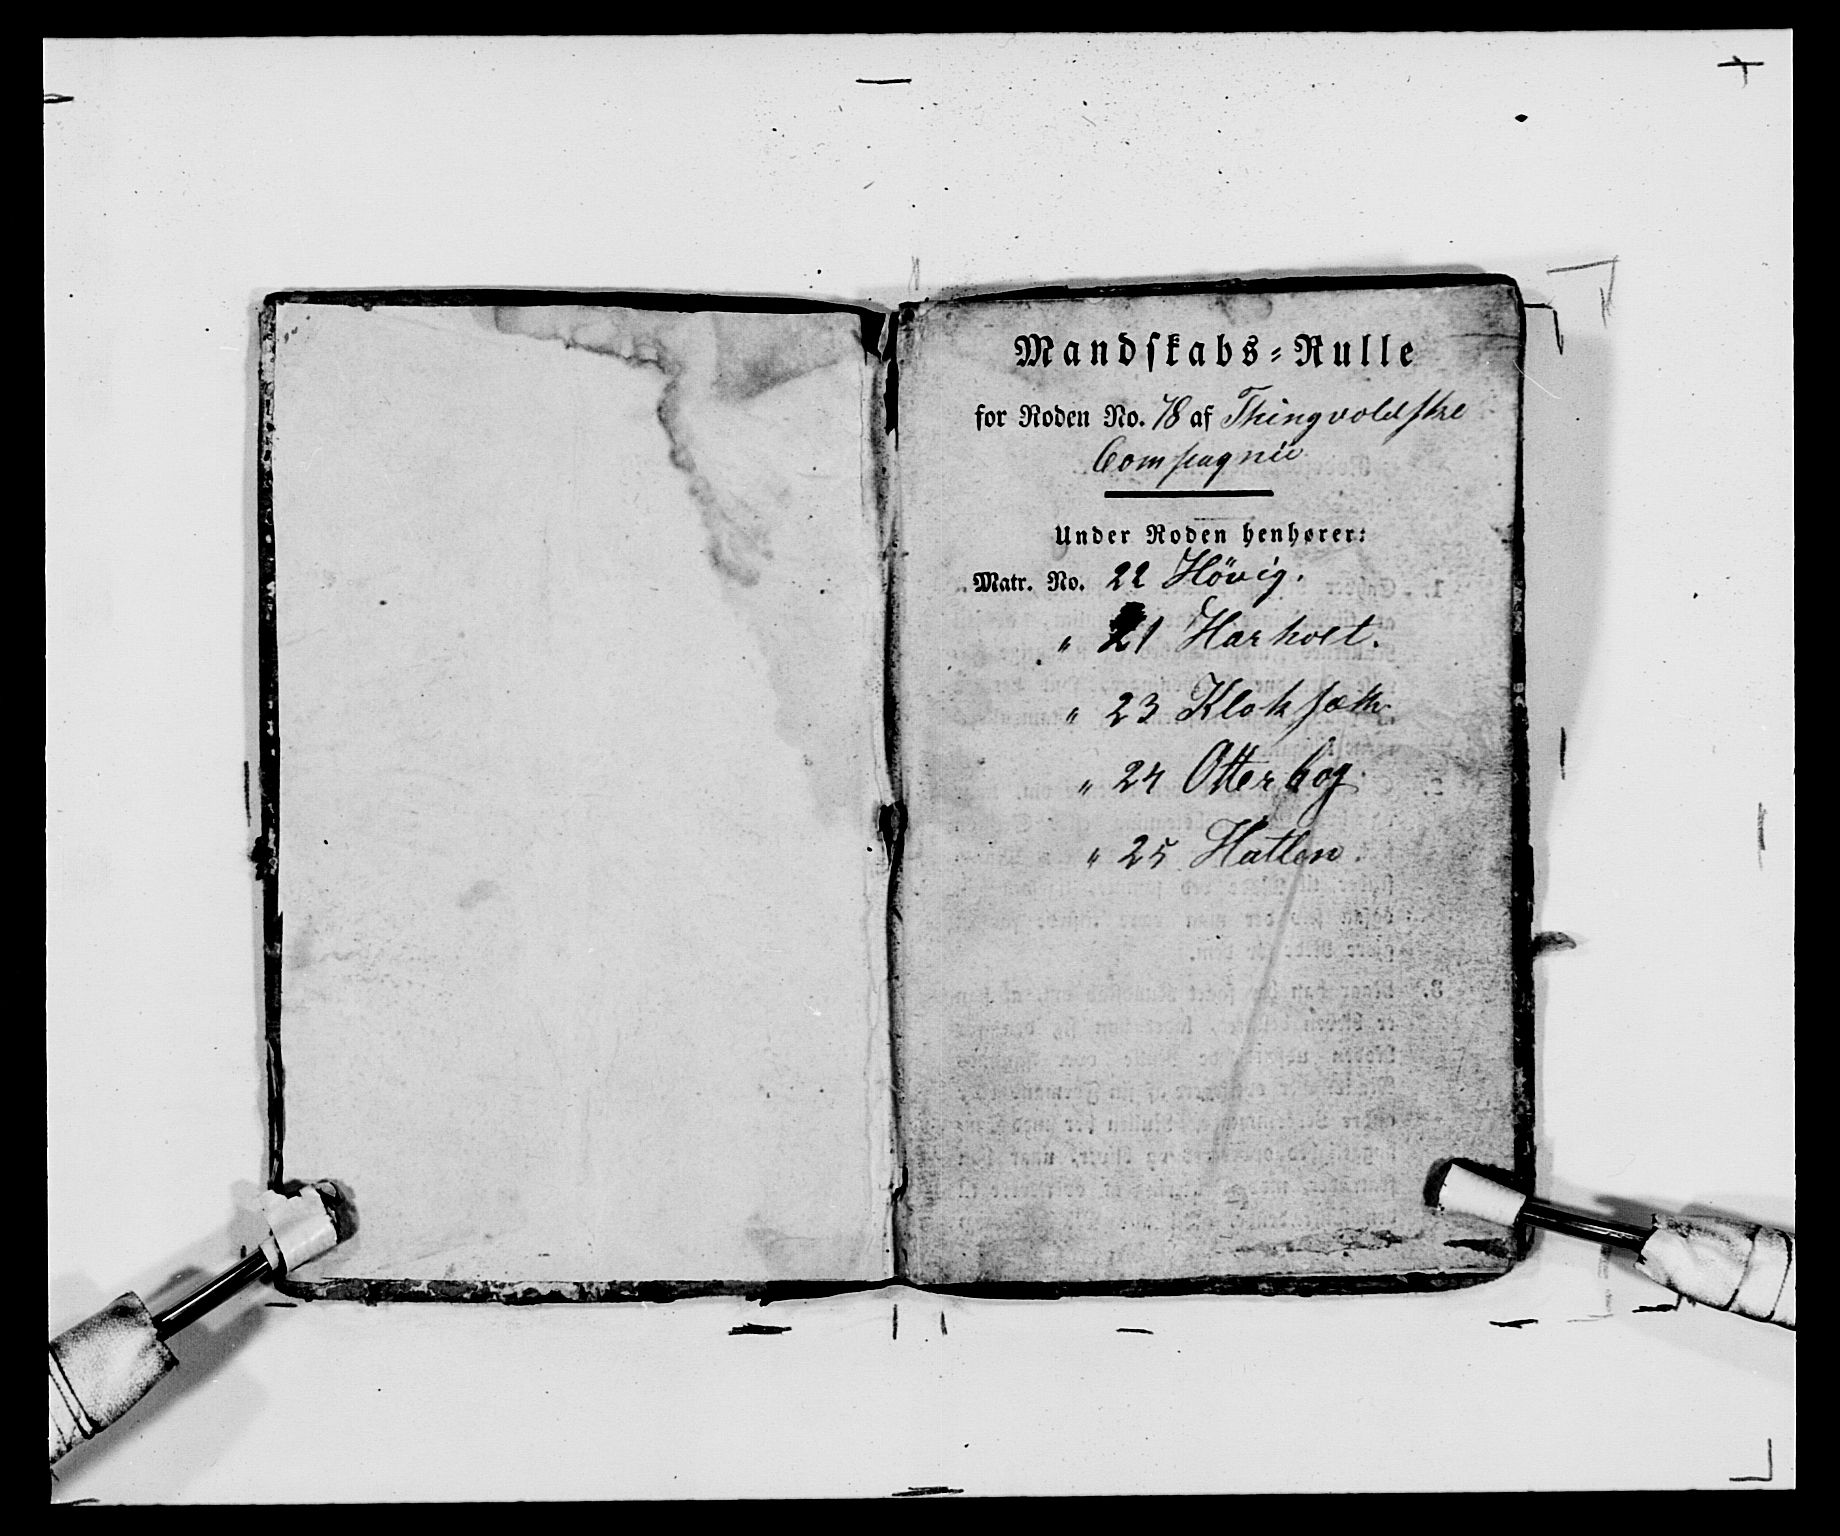 Mandskabs-Rulle
for Roden No. 78 af Thingvoldske
Compagnie
Under Roden henhører:
Matr. No. 22 Hövig.
" 21 Harholt.
" 23 Klokset
" 24 Otterbog.
" 25 Hatlen.